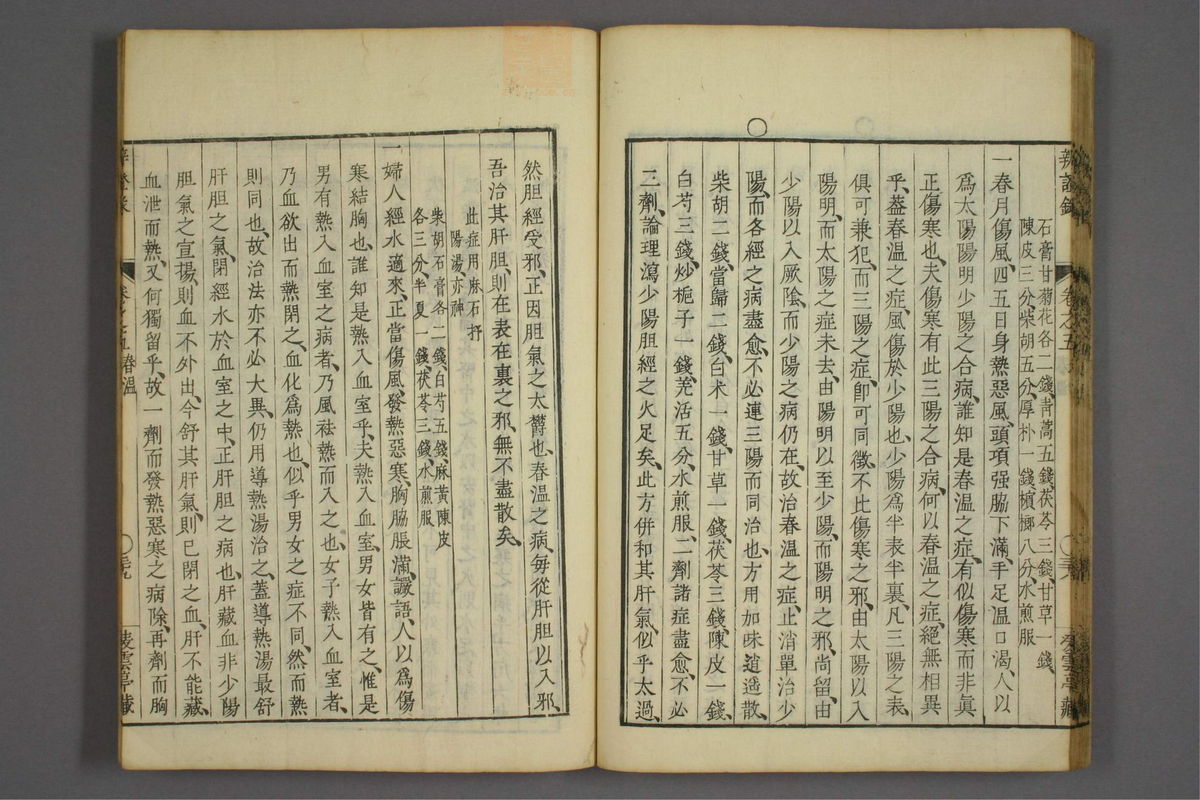 辨證錄 卷之五 凌雲亭藏
石膏甘菊花各二錢、青蒿五錢、茯苓三錢、甘草一錢、
陳皮三分、柴胡五分、厚朴一錢、檳榔八分、水煎服
一春月傷風、四五日身熱惡風、頭項强、脇下滿、手足溫、口渴、人以
爲太陽陽明少陽之合病、誰知是春溫之症、有似傷寒而非眞
正傷寒也、夫傷寒有此三陽之合病、何以春溫之症、絕無相異
乎、蓋春溫之症、風傷於少陽也、少陽爲半表半裏、凡三陽之表、
俱可兼犯、而三陽之症、卽可同徵、不比傷寒之邪、由太陽以入
陽明、而太陽之症未去、由陽明以至少陽、而陽明之邪、尚留、由
少陽以入厥陰、而少陽之病仍在、故治春溫之症、止消單治少
陽、而各經之病盡愈、不必連三陽而同治也、方用加味逍遥散、
柴胡二錢、當歸二錢、白术一錢、甘草一錢、茯苓三錢、陳皮一錢、
白芍三錢、炒梔子一錢、羌活五分、水煎服、二劑諸症盡愈、不必
三劑、論理瀉少陽胆經之火足矣、此方併和其肝氣、似乎太過、
然胆經受邪、正因胆氣之太欝也、春溫之病、每從肝胆以入邪、
吾治其肝胆、則在表在裏之邪、無不盡散矣、
此症用麻石抒
陽湯、亦神
柴胡石膏各二錢、白芍五錢、麻黃陳皮
各三分、半夏一錢、茯苓三錢、水煎服
一婦人經水適來、正當傷風、發熱惡寒、胸脇脹滿、讝語、人以爲傷
寒結胸也、誰知是熱入血室乎、夫熱入血室、男女皆有之、惟是
男有熱入血室之病者、乃風袪熱而入之也、女子熱入血室者、
乃血欲出而熱閉之、血化爲熱也、似乎男女之症不同、然而熱
則同也、故治法亦不必大異、仍用導熱湯治之、蓋導熱湯最舒
肝胆之氣、閉經水於血室之中、正肝胆之病也、肝藏血非少陽
胆氣之宣揚、則血不外出、今舒其肝氣、則已閉之血、肝不能藏、
血泄而熱、又何獨留乎、故一劑而發熱惡寒之病除、再劑而胸
春溫 凌雲亭藏